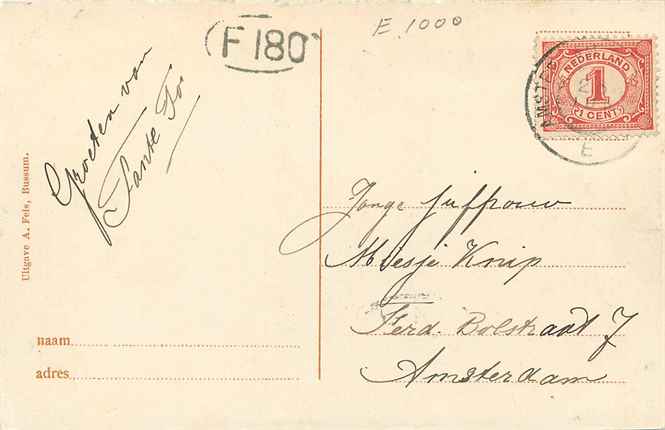 E 1000
F 180
NEDERLAND
1
1 CENT
AMSTE
E
Groeten van
Tante To
Jonge Juffrouw
Miesje Knip
Ferd. Bolstraat 7
Amsterdam
Uitgave A. Fels, Bussum.
naam
adres